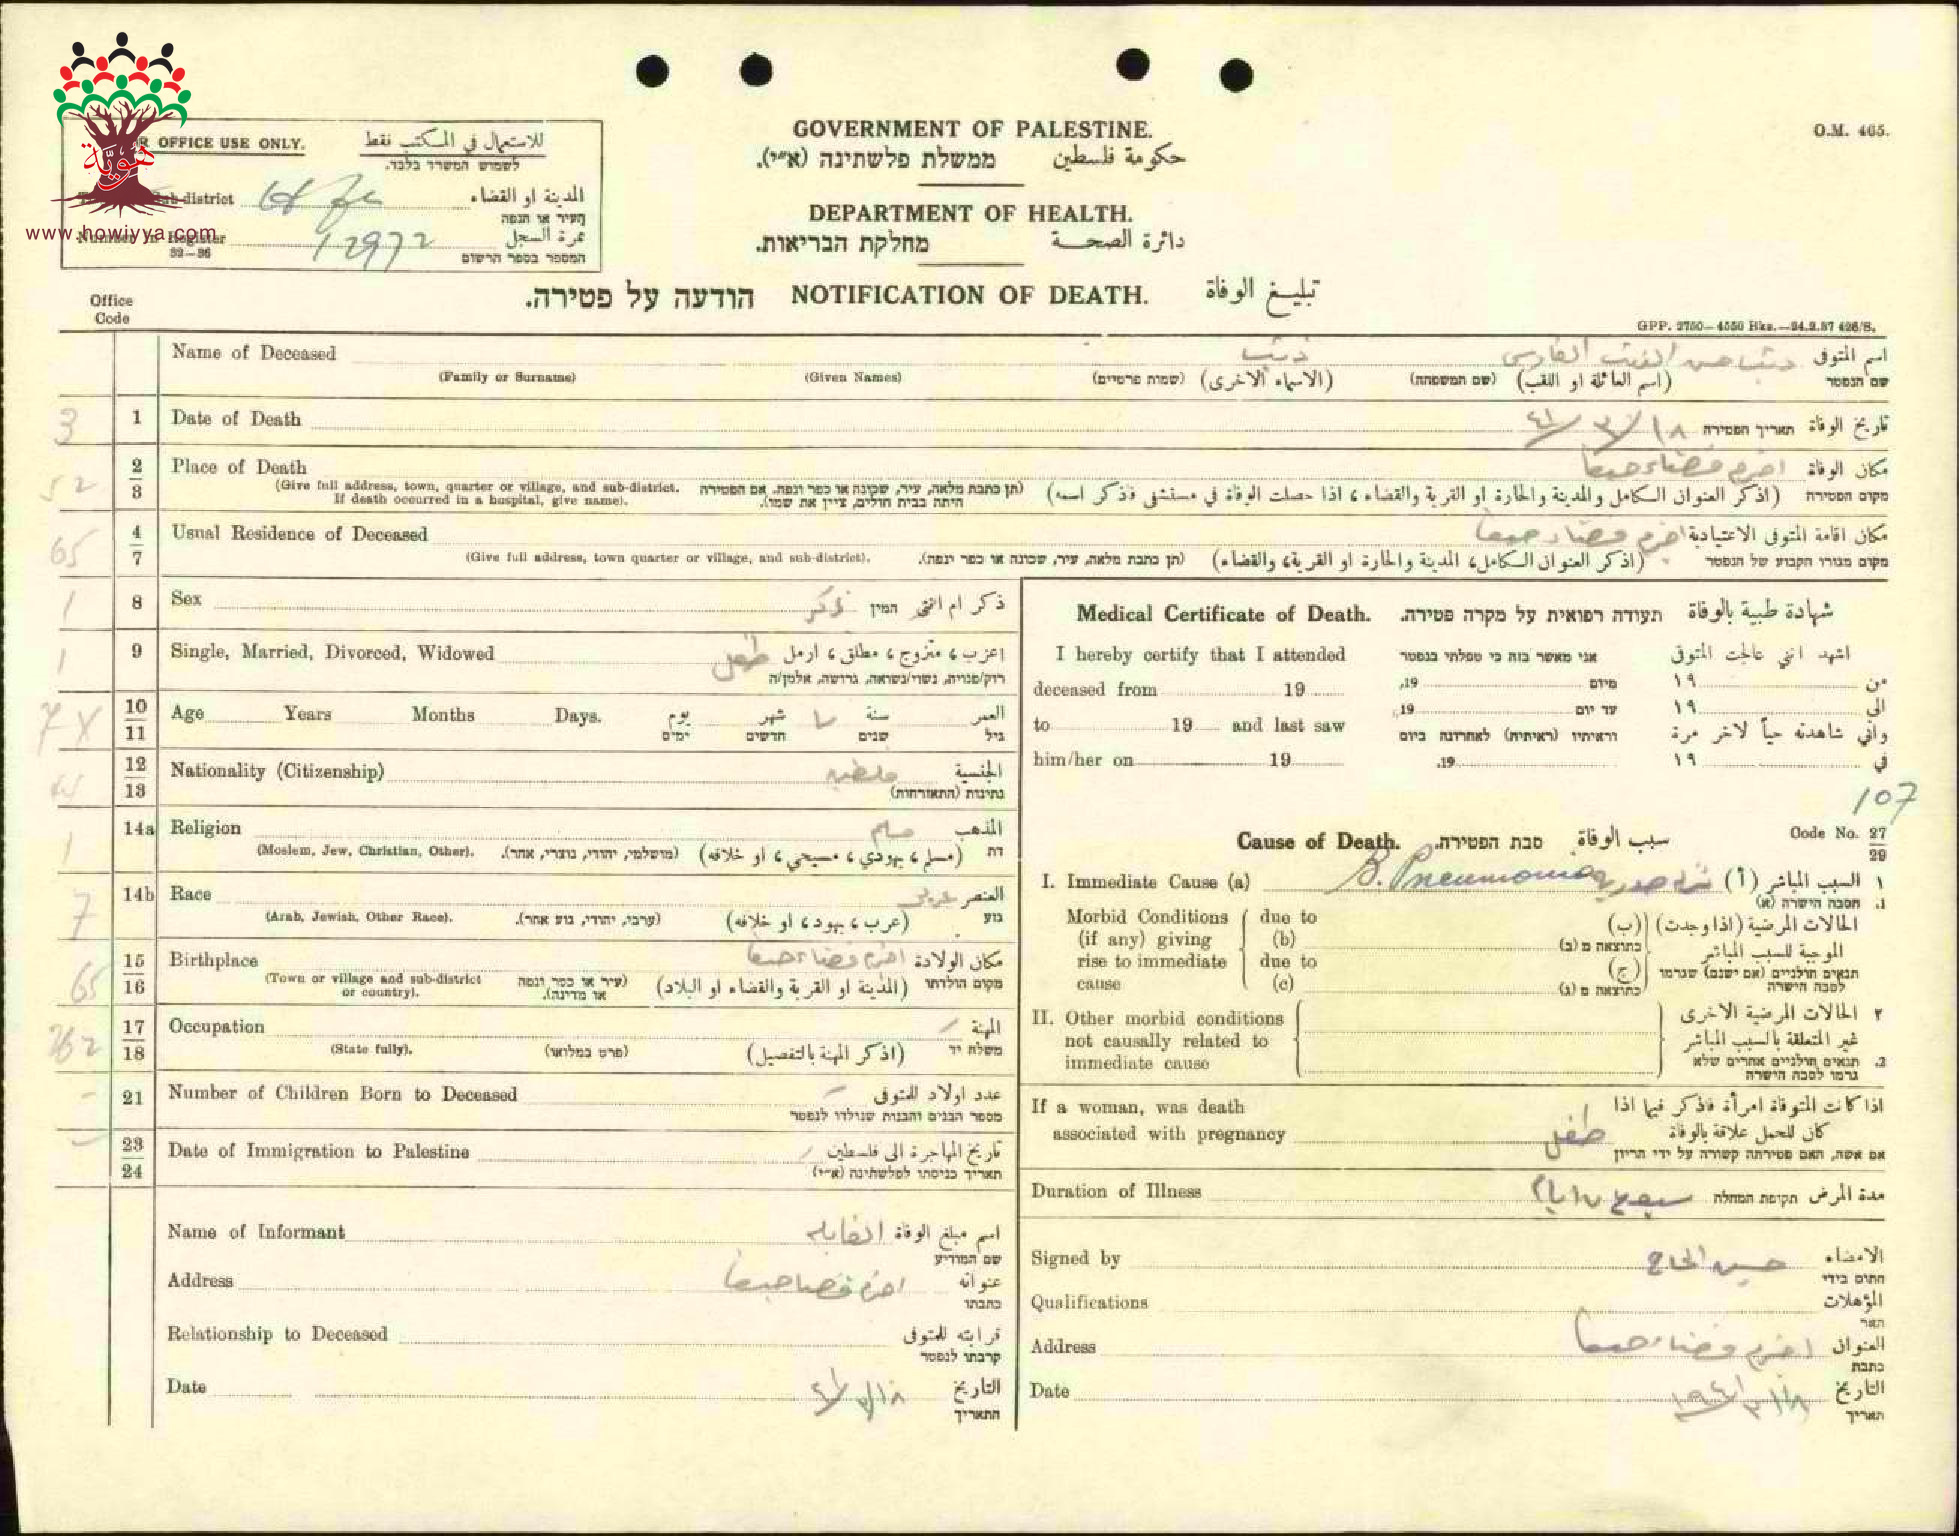 هويّة
www.howiyya.com
OFFICE USE ONLY.
للاستعمال في المكتب فقط
לשמוש המשרד בלבד.
Sub-district
المدينة او القضاء
העיר או הנפה
Number in Register 12972
نمرة السجل
32—36
המספר בספר הרשום
GOVERNMENT OF PALESTINE.
ממשלת פלשתינה (א״י). حكومة فلسطين
DEPARTMENT OF HEALTH.
מחלקת הבריאות. دائرة الصحة
הודעה על פטירה. NOTIFICATION OF DEATH. تبليغ الوفاة
O.M. 465.
GPP. 2750—4550 Bks.—24.2.37 426/S.
Office
Code
Name of Deceased ذيب اسم المتوفى
(Family or Surname) (Given Names) (שמות פרטיים) (الاسماء الاخرى) (שם המשפחה) (اسم العائلة او اللقب) שם הנפטר
3 1 Date of Death ١٨/٣/٤١ תאריך הפטירה تاريخ الوفاة
52 2 3 Place of Death اجزم قضاء حيفا مكان الوفاة
(Give full address, town, quarter or village, and sub-district. If death occurred in a hospital, give name).
(תן כתבת מלאה, עיר, שכונה או כפר ונפה. אם הפטירה היתה בבית חולים, ציין את שמו).
(اذكر العنوان الكامل والمدينة والحارة او القرية والقضاء ، اذا حصلت الوفاة في مستشفى فاذكر اسمه) מקום הפטירה
65 4 7 Usual Residence of Deceased اجزم قضاء حيفا مكان اقامة المتوفى الاعتيادية
(Give full address, town quarter or village, and sub-district). (תן כתבת מלאה, עיר, שכונה או כפר ונפה). (اذكر العنوان الكامل، المدينة والحارة او القرية، والقضاء) מקום מגורו הקבוע של הנפטר
1 8 Sex ذكر המין ذكر ام انثى
1 9 Single, Married, Divorced, Widowed طفل اعزب ، متزوج ، مطلق ، ارمل
רוק/פנויה, נשוי/נשואה, גרושה, אלמן/ה
10 11 Age Years Months Days. يوم شهر سنة العمر
ימים חדשים שנים גיל
12 13 Nationality (Citizenship) الجنسية
נתינות (התאזרחות)
1 14a Religion مسلم المذهب
(Moslem, Jew, Christian, Other). (מושלמי, יהודי, נוצרי, אחר). (مسلم ، يهودي ، مسيحي ، او خلافه) דת
7 14b Race عربي العنصر
(Arab, Jewish, Other Race). (ערבי, יהודי, גזע אחר). (عرب ، يهود ، او خلافه) גזע
65 15 16 Birthplace اجزم قضاء حيفا مكان الولادة
(Town or village and sub-district or country). (עיר או כפר ונפה או מדינה). (المدينة او القرية والقضاء او البلاد) מקום הולדתו
17 18 Occupation المهنة
(State fully). (פרט במלואו) (اذكر المهنة بالتفصيل) משלח יד
21 Number of Children Born to Deceased عدد اولاد للمتوفى
מספר הבנים והבנות שנולדו לנפטר
23 24 Date of Immigration to Palestine تاريخ المهاجرة الى فلسطين
תאריך כניסתו לפלשתינה (א״י)
Name of Informant القابله اسم مبلغ الوفاة
שם המודיע
Address اجزم قضا حيفا عنوانه
כתבתו
Relationship to Deceased قرابته للمتوفى
קרבתו לנפטר
Date ١٨/٣/٤١ التاريخ
התאריך
Medical Certificate of Death. תעודה רפואית על מקרה פטירה. شهادة طبية بالوفاة
I hereby certify that I attended אני מאשר בזה כי טפלתי בנפטר اشهد انني عالجت المتوفى
deceased from 19 19, מיום ١٩ من
to 19 and last saw 19, עד יום ١٩ الى
וראיתיו (ראיתיה) לאחרונה ביום واني شاهدته حياً لآخر مرة
him/her on 19 19. ١٩ في
107
Cause of Death. סבת הפטירה. سبب الوفاة Code No. 27 29
I. Immediate Cause (a) B. Pneumonia نزله صدريه السبب المباشر (أ) ١
הסבה הישרה (א) .1
Morbid Conditions due to الحالات المرضية (اذا وجدت) (ب)
(if any) giving (b) כתוצאה מ (ב) الموجبة للسبب المباشر
rise to immediate due to (ج) תנאים חולניים (אם ישנם) שגרמו
cause (c) כתוצאה מ (ג) לסבה הישרה
II. Other morbid conditions ٢ الحالات المرضية الاخرى
not causally related to غير المتعلقة بالسبب المباشر
immediate cause תנאים חולניים אחרים שלא .2
גרמו לסבה הישרה
If a woman, was death اذا كانت المتوفاة امرأة فاذكر فيما اذا
associated with pregnancy طفل كان للحمل علاقة بالوفاة
אם אשה, האם פטירתה קשורה על ידי הריון
Duration of Illness תקופת המחלה مدة المرض
Signed by حسين الحاج الامضاء
חתום בידי
Qualifications المؤهلات
תאר
Address اجزم قضاء حيفا العنوان
כתבת
Date ١٨/٣/١٩٤١ التاريخ
תאריך